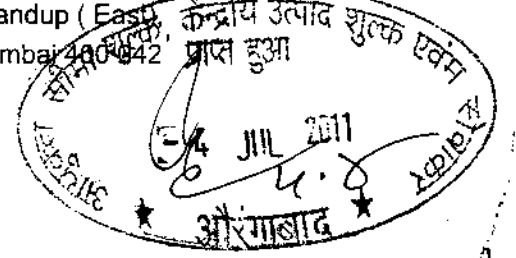 andup ( East)
mbai 400 042
आयुक्त सीमा शुल्क, केन्द्रीय उत्पाद शुल्क एवंम सेवाकर
प्राप्त हुआ
4 JUL 2011
★ औरंगाबाद ★